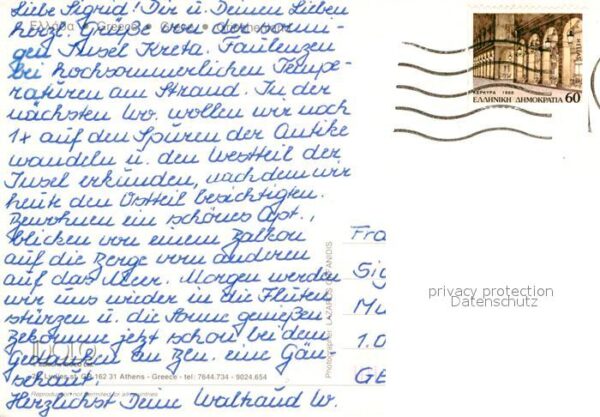 Liebe Sigrid! Dir u. Deinen Lieben
herzl. Grüße von der sonni-
gen Insel Kreta. Faulenzen
bei hochsommerlichen Tempe-
raturen am Strand. In der
nächsten Wo. wollen wir noch
1x auf den Spuren der Antike
wandeln u. den Westteil der
Insel erkunden, nachdem wir
heute den Ostteil besichtigten.
Bewohnen ein schönes Apt.,
blicken von einem Balkon
auf die Berge vom anderen
auf das Meer. Morgen werden
wir uns wieder in die Fluten
stürzen u. die Sonne genießen
Bekomme jetzt schon bei dem
Gedanken an Zen. eine Gän-
sehaut.
Herzlichst Deine Waltraud W.
Ελλάδα • Greece
ΚΕΡΚΥΡΑ 1988
ΕΛΛΗΝΙΚΗ ΔΗΜΟΚΡΑΤΙΑ 60
Fra
Sig
Mu
1.0
GE
privacy protection
Datenschutz
Photographer: LAZAROS
Lydias st. GR 162 31 Athens - Greece - tel: 7644.734 - 9024.654
Reproduction not permitted for all countries